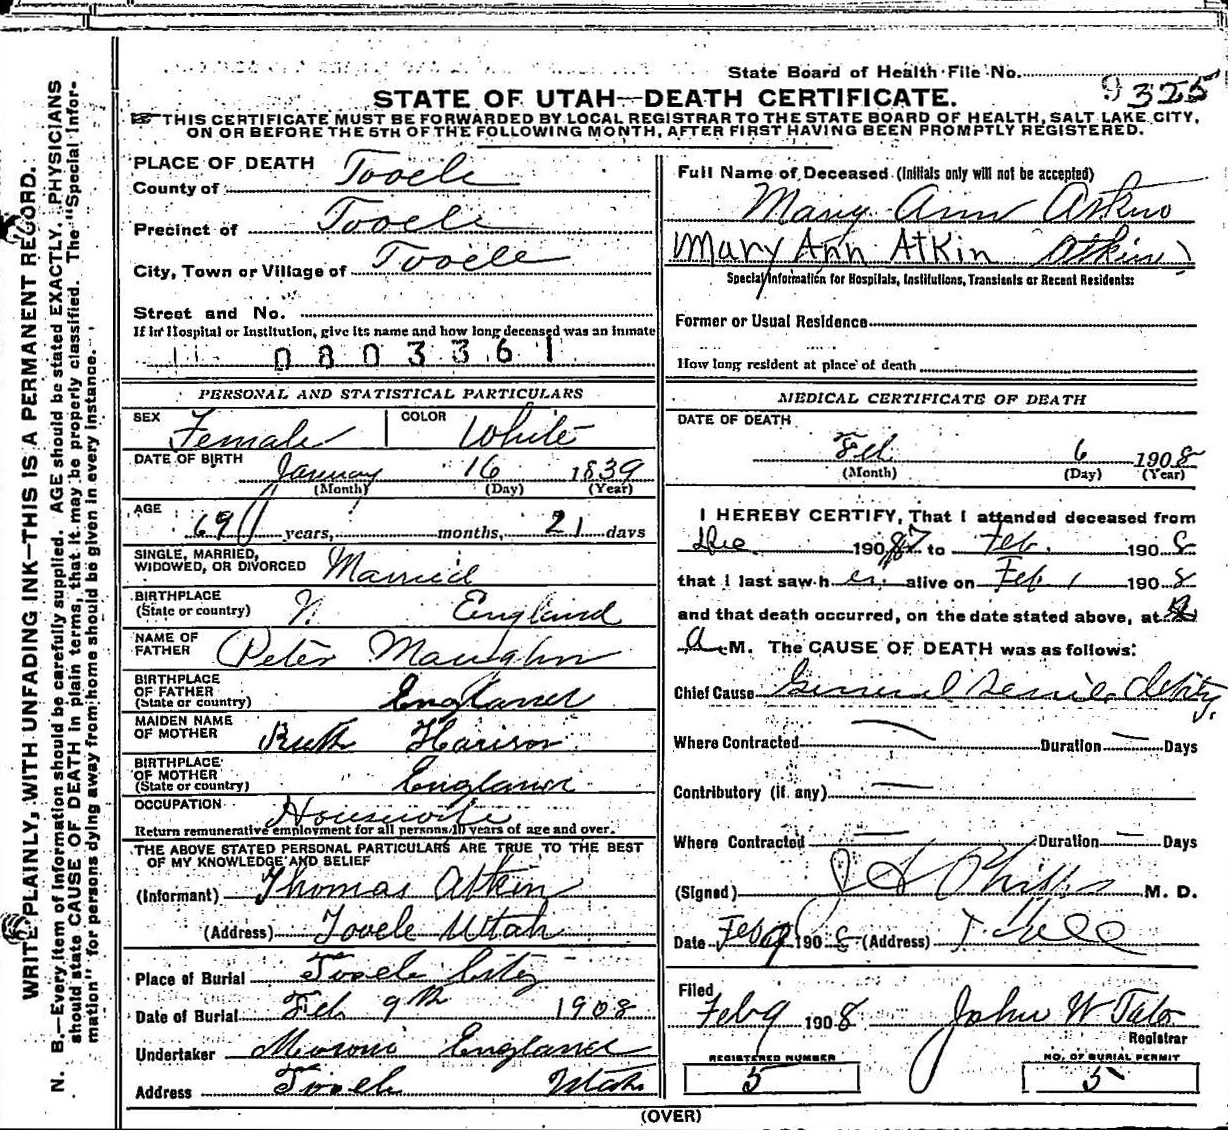 State Board of Health File No. 9325
STATE OF UTAH—DEATH CERTIFICATE.
THIS CERTIFICATE MUST BE FORWARDED BY LOCAL REGISTRAR TO THE STATE BOARD OF HEALTH, SALT LAKE CITY,
ON OR BEFORE THE 5TH OF THE FOLLOWING MONTH, AFTER FIRST HAVING BEEN PROMPTLY REGISTERED.
WRITE PLAINLY, WITH UNFADING INK—THIS IS A PERMANENT RECORD.
N. B.—Every item of information should be carefully supplied. AGE should be stated EXACTLY. PHYSICIANS
should state CAUSE OF DEATH in plain terms, that it may be properly classified. The "Special Infor-
mation" for persons dying away from home should be given in every instance.
PLACE OF DEATH
County of Tooele
Precinct of Tooele
City, Town or Village of Tooele
Street and No.
If in Hospital or Institution, give its name and how long deceased was an inmate
0803361
PERSONAL AND STATISTICAL PARTICULARS
SEX Female COLOR White
DATE OF BIRTH January 16 1839
(Month) (Day) (Year)
AGE 69 years, months, 21 days
SINGLE, MARRIED,
WIDOWED, OR DIVORCED Married
BIRTHPLACE
(State or country) England
NAME OF
FATHER Peter Maughn
BIRTHPLACE
OF FATHER
(State or country) England
MAIDEN NAME
OF MOTHER Ruth Harison
BIRTHPLACE
OF MOTHER
(State or country) England
OCCUPATION Housewife
Return remunerative employment for all persons 10 years of age and over.
THE ABOVE STATED PERSONAL PARTICULARS ARE TRUE TO THE BEST
OF MY KNOWLEDGE AND BELIEF
(Informant) Thomas Atkin
(Address) Tooele Utah
Place of Burial Tooele City
Date of Burial Feb 9th 1908
Undertaker Moroni England
Address Tooele Utah
Full Name of Deceased (Initials only will not be accepted)
Mary Ann Atkin
Mary Ann Atkin Atkin)
Special Information for Hospitals, Institutions, Transients or Recent Residents:
Former or Usual Residence
How long resident at place of death
MEDICAL CERTIFICATE OF DEATH
DATE OF DEATH
Feb. 6 1908
(Month) (Day) (Year)
I HEREBY CERTIFY, That I attended deceased from
Dec 1907 to Feb. 1908
that I last saw her alive on Feb 1 1908
and that death occurred, on the date stated above, at
a M. The CAUSE OF DEATH was as follows:
Chief Cause General Senile Debility
Where Contracted — Duration — Days
Contributory (if any) —
Where Contracted — Duration — Days
(Signed) Phipps M. D.
Date Feb 9 1908 (Address) Tooele
Filed
Feb 9 1908 John W Tate
Registrar
REGISTERED NUMBER
5
NO. OF BURIAL PERMIT
5
(OVER)